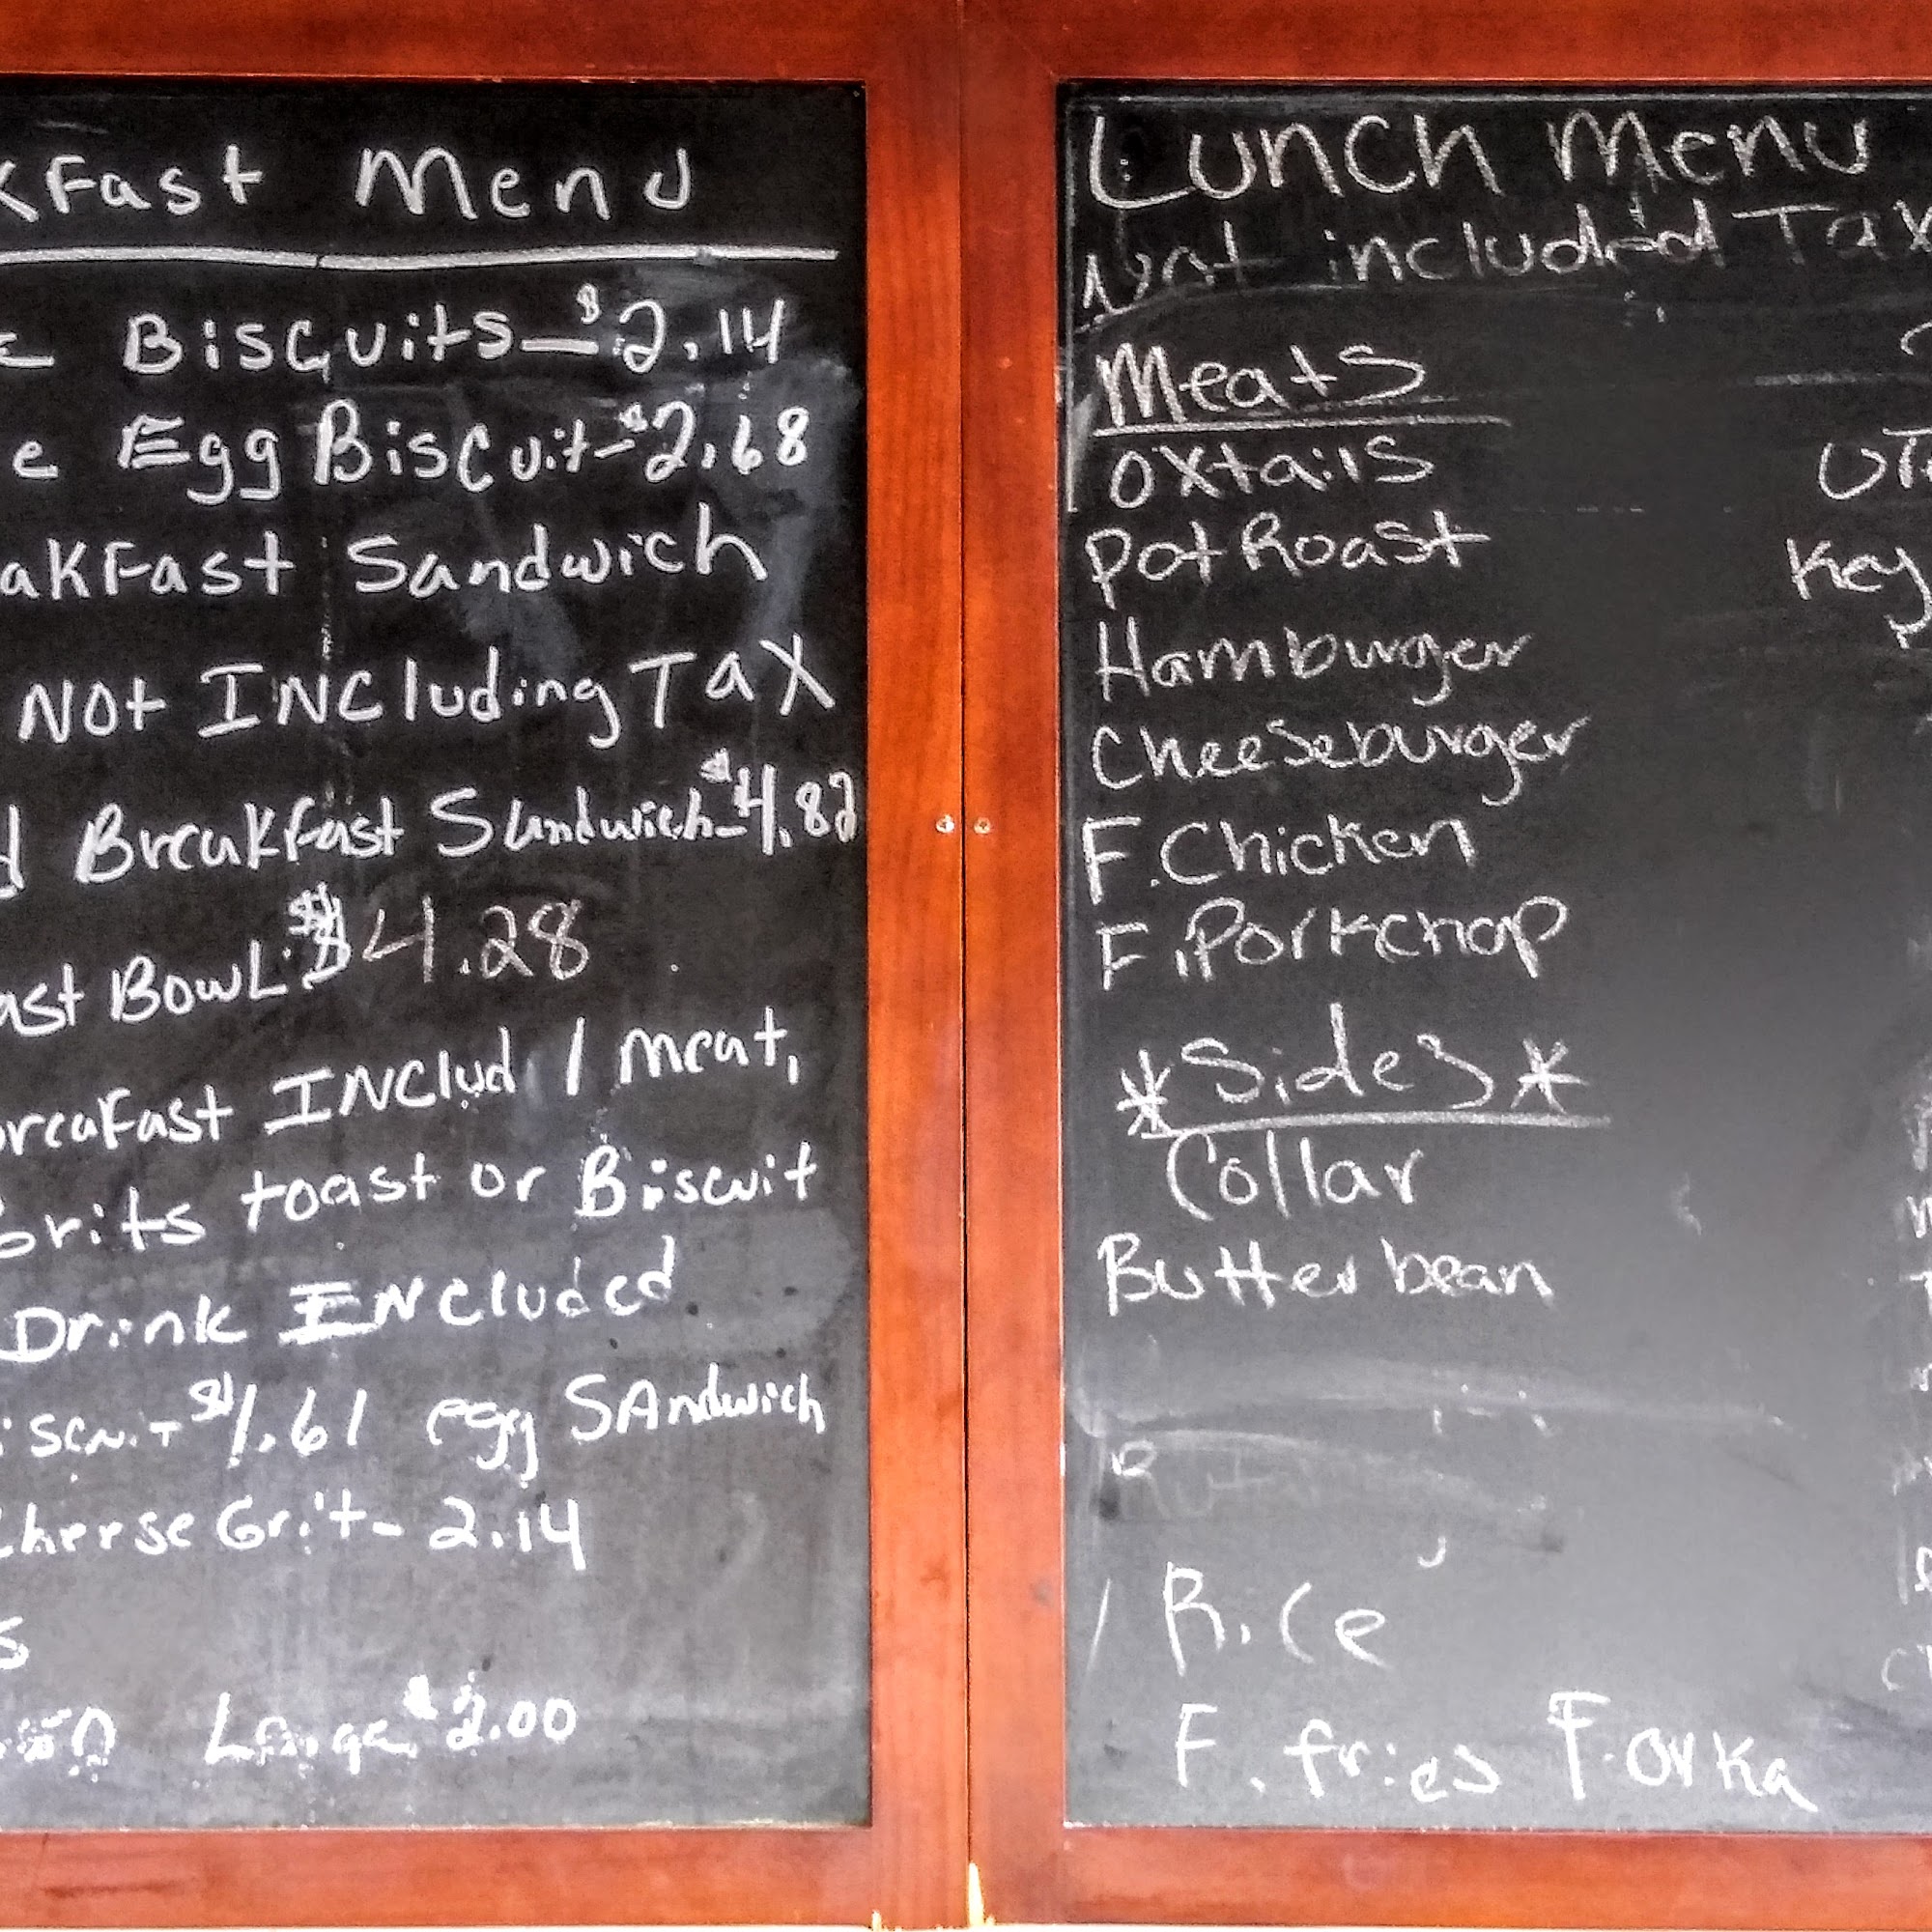 kFast Menu
Biscuits - $2.14
e Egg Biscuit - $2.68
akFast Sandwich
NOt INCluding Tax
d Breakfast Sandwich - $4.82
ast Bowl $4.28
breaFast INClud 1 meat,
Grits toast or Biscuit
Drink INCluded
iscuit $1.61 egg SAndwich
Cheese Grit - 2.14
s
50 Large $2.00
Lunch Menu
Not included Tax
Meats
Oxtails
Pot Roast
Key
Hamburger
Cheeseburger
F. Chicken
F. Porkchop
*Sides*
Collar
Butter bean
Rice
F. fries F. Orka